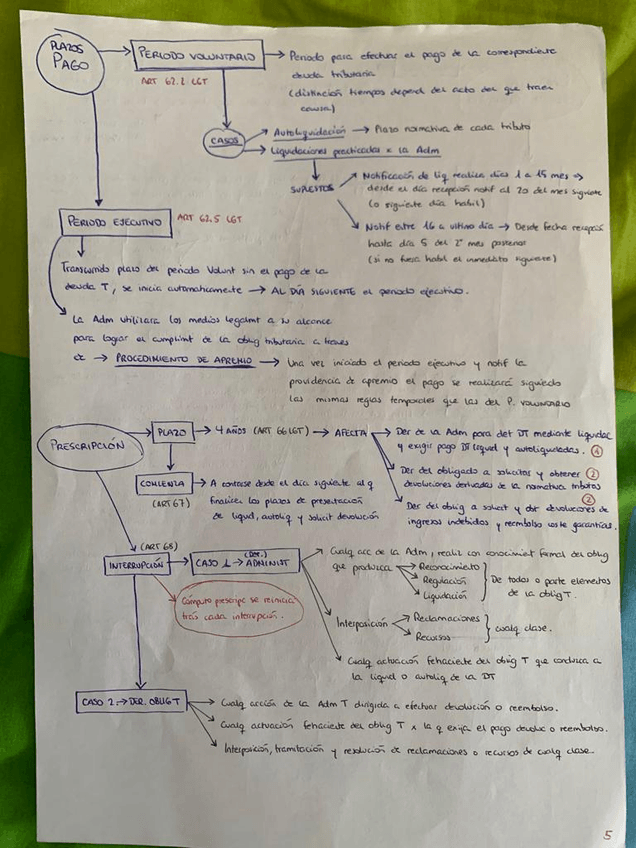 PLAZOS
PAGO
PERIODO VOLUNTARIO
ART 62.2 LGT
Periodo para efectuar el pago de la correspondiente
deuda tributaria
(distinción tiempos depend del acto del que traen
causa)
CASOS
Autoliquidación → Plazo normativa de cada tributo
Liquidaciones practicadas x la Adm
SUPUESTOS
Notificación de liq realiza días 1 a 15 mes ⇒
desde el día recepción notif al 20 del mes siguiente
(o siguiente día hábil)
Notif entre 16 a último día → Desde fecha recepció
hasta día 5 del 2º mes posterior
(si no fuera habil el inmediato siguiente)
PERIODO EJECUTIVO
ART 62.5 LGT
Transcurrido plazo del periodo Volunt sin el pago de la
deuda T, se inicia automáticamente → AL DÍA SIGUIENTE el periodo ejecutivo.
La Adm utilizara los medios legalmt a su alcance
para lograr el cumplimt de la oblig tributaria a traves
de → PROCEDIMIENTO DE APREMIO → Una vez iniciado el periodo ejecutivo y notif la
providencia de apremio el pago se realizará siguiedo
las mismas reglas temporales que las del P. VOLUNTARIO
PRESCRIPCIÓN
PLAZO → 4 AÑOS (ART 66 LGT) → AFECTA
Der de la Adm para det DT mediante liquidac
y exigir pago DT liquid y autoliquidadas.
Der del obligado a solicitar y obtener ②
devoluciones derivadas de la normativa tributos
②
Der del oblig a solicit y obt devoluciones de
ingresos indebidos y reembolso coste garantías.
COMIENZA
(ART 67)
A contarse desde el día siguiente al q
finalicen los plazos de presentación
de liquid, autoliq y solicit devolución
(ART 68)
INTERRUPCIÓN
CASO 1 → (DER.) ADMINIST
Cómputo prescripc se reinicia
tras cada interrupción.
Cualq acc de la Adm, realiz con conocimiet formal del oblig
que produzca
Reconocimiento
Regulación
Liquidación
De todos o parte elementos
de la oblig T.
Interposición
Reclamaciones
Recursos
cualq clase.
Cualq actuación fehaciente del oblig T que conduzca a
la liquid o autoliq de la DT
CASO 2 → DER. OBLIG T
Cualq acción de la Adm T dirigida a efectuar devolución o reembolso.
Cualq actuación fehaciente del oblig T x la q exija el pago devoluc o reembolso.
Interposición, tramitación y resolución de reclamaciones o recursos de cualq clase.
5